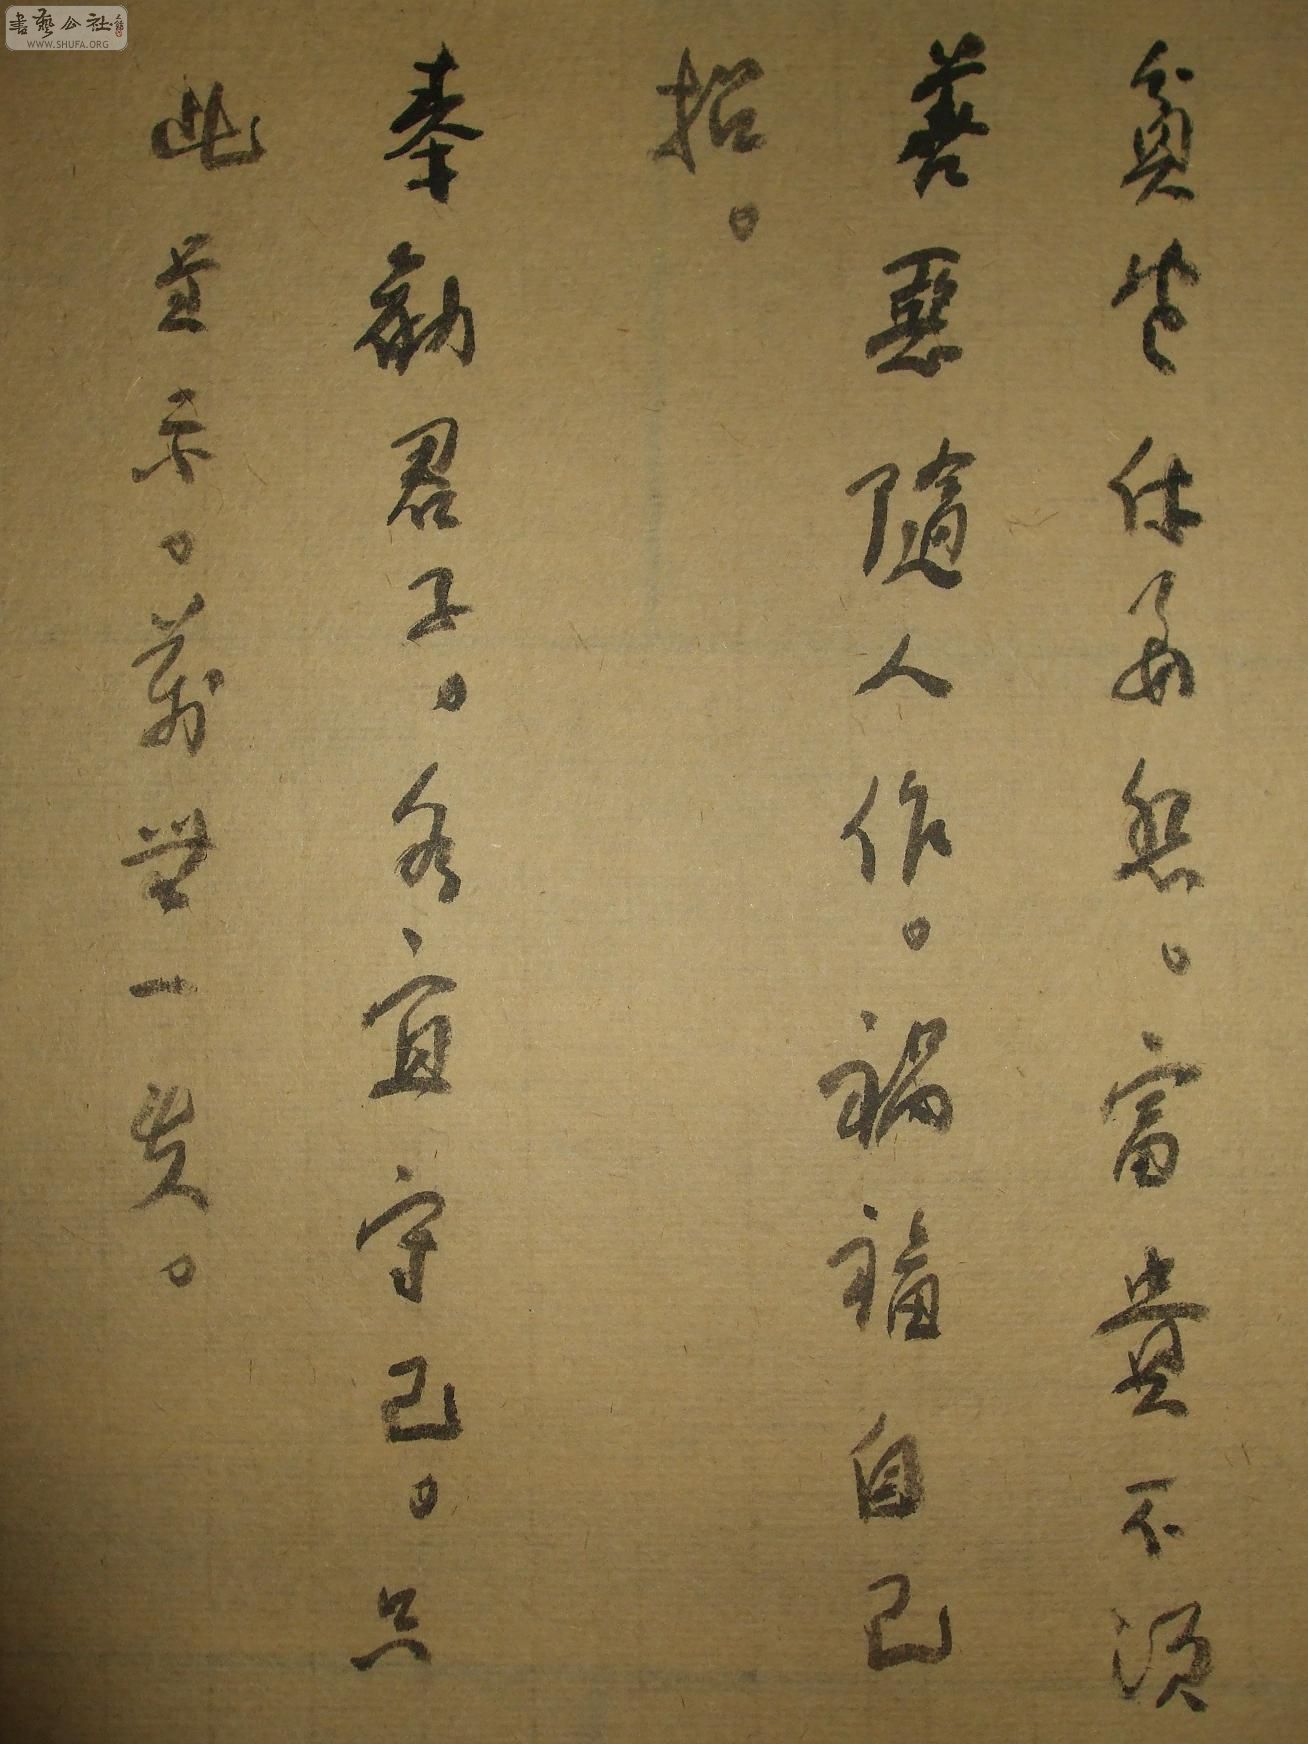 書藝公社
WWW.SHUFA.ORG
貧休要怨。富貴不須
善惡隨人作。禍福自己
招。
奉勸君子。各宜守己。只
此呈示。萬無一失。